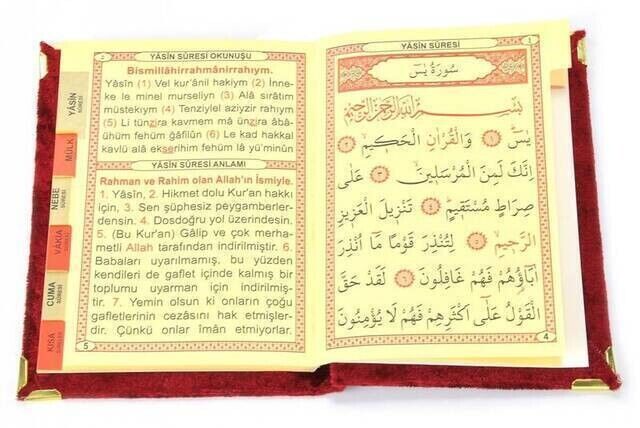 YÂSİN SÛRESİ OKUNUŞU
Bismillâhirrahmânirrahıym.
Yâsîn (1) Vel kur'ânil hakiym (2) İnne-
ke le minel murseliyn (3) Alâ sırâtim
müstekıym (4) Tenziylel aziyzir rahıym
(5) Li tünzira kavmem mâ ünzira âbâ-
ühüm fehüm ğâfilûn (6) Le kad hakkal
kavlü alâ ekserihim fehüm lâ yü'minûn
YÂSİN SÛRESİ ANLAMI
Rahman ve Rahim olan Allah'ın İsmiyle.
1. Yâsîn, 2. Hikmet dolu Kur'an hakkı
için, 3. Sen şüphesiz peygamberler-
densin. 4. Dosdoğru yol üzerindesin.
5. (Bu Kur'an) Gâlip ve çok merha-
metli Allah tarafından indirilmiştir. 6.
Babaları uyarılmamış, bu yüzden
kendileri de gaflet içinde kalmış bir
toplumu uyarman için indirilmiş-
tir. 7. Yemin olsun ki onların çoğu
gafletlerinin cezasını hak etmişler-
dir. Çünkü onlar îmân etmiyorlar.
5
YÂSİN
SÛRESİ
MÜLK
NEBE
SÛRESİ
VAKIA
CUMA
SÛRESİ
KISA
SÛRELER
YÂSİN SÛRESİ
سُورَةُ يٰسٓ
بِسْمِ اللّٰهِ الرَّحْمٰنِ الرَّحِيمِ
يٰسٓ ﴿١﴾ وَالْقُرْاٰنِ الْحَكِيمِ ﴿٢﴾
اِنَّكَ لَمِنَ الْمُرْسَلِينَ ﴿٣﴾ عَلٰى
صِرَاطٍ مُسْتَقِيمٍ ﴿٤﴾ تَنْزِيلَ الْعَزِيزِ
الرَّحِيمِ ﴿٥﴾ لِتُنْذِرَ قَوْمًا مَا اُنْذِرَ
اٰبَاؤُهُمْ فَهُمْ غَافِلُونَ ﴿٦﴾ لَقَدْ حَقَّ
الْقَوْلُ عَلٰى اَكْثَرِهِمْ فَهُمْ لَا يُؤْمِنُونَ
4